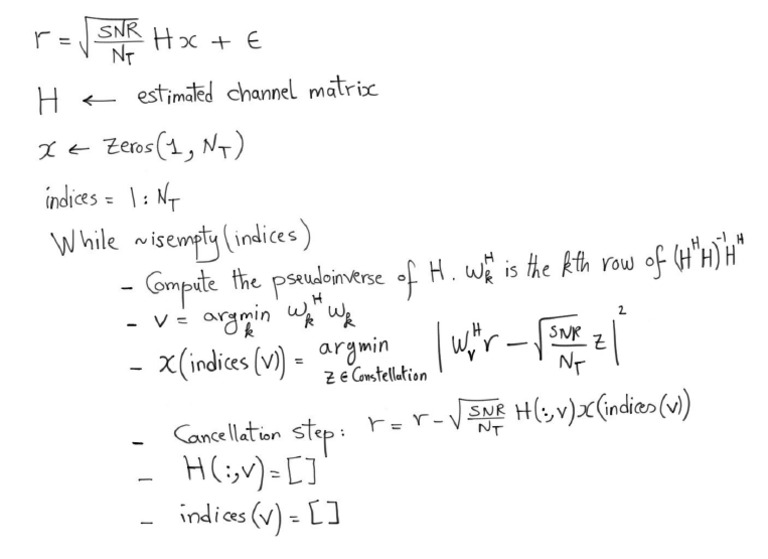 r = √(SNR/N_T) H x + ϵ
H ← estimated channel matrix
x ← Zeros(1, N_T)
indices = 1 : N_T
While ~isempty(indices)
- Compute the pseudoinverse of H. w_k^H is the kth row of (H^H H)^-1 H^H
- v = argmin_k w_k^H w_k
- x(indices(v)) = argmin_{z ∈ Constellation} | w_v^H r - √(SNR/N_T) z |^2
- Cancellation step: r = r - √(SNR/N_T) H(:,v)x(indices(v))
- H(:,v) = []
- indices(v) = []